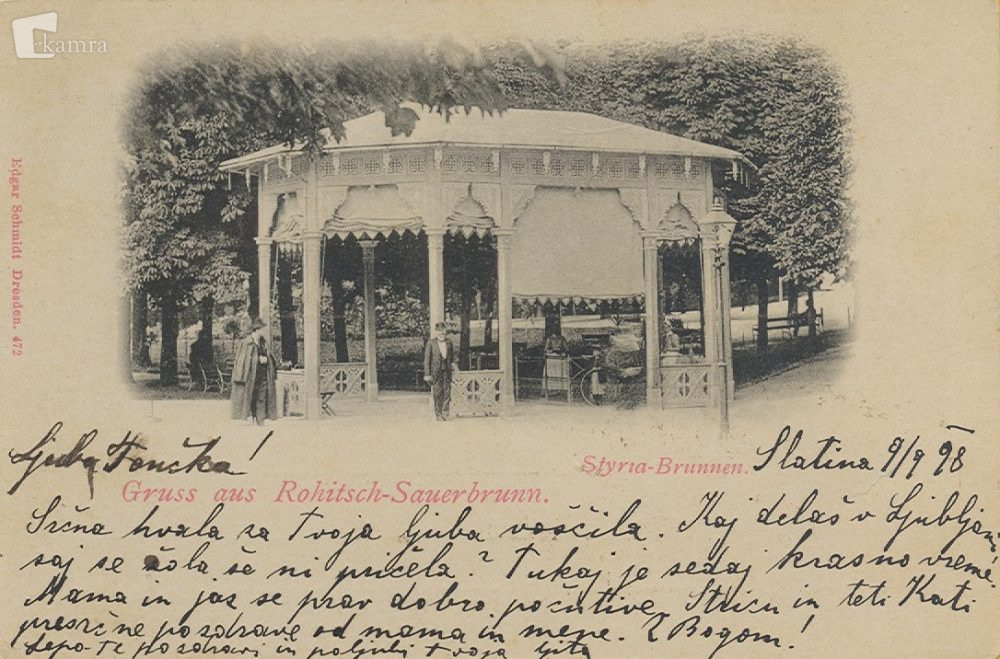 kamra
Edgar Schmidt Dresden. 472
Ljuba Tončka!
Styria-Brunnen.
Slatina 9/9 98
Gruss aus Rohitsch-Sauerbrunn.
Srčna hvala za Tvoja ljuba voščila. Kaj delaš v Ljubljani
saj se šola še ni pričela? Tukaj je sedaj krasno vreme.
Mama in jaz se prav dobro počutive. Stricu in teti Kati
presrčne pozdrave od mama in mene. Z Bogom!
Lepo Te pozdravi in poljubi Tvoja